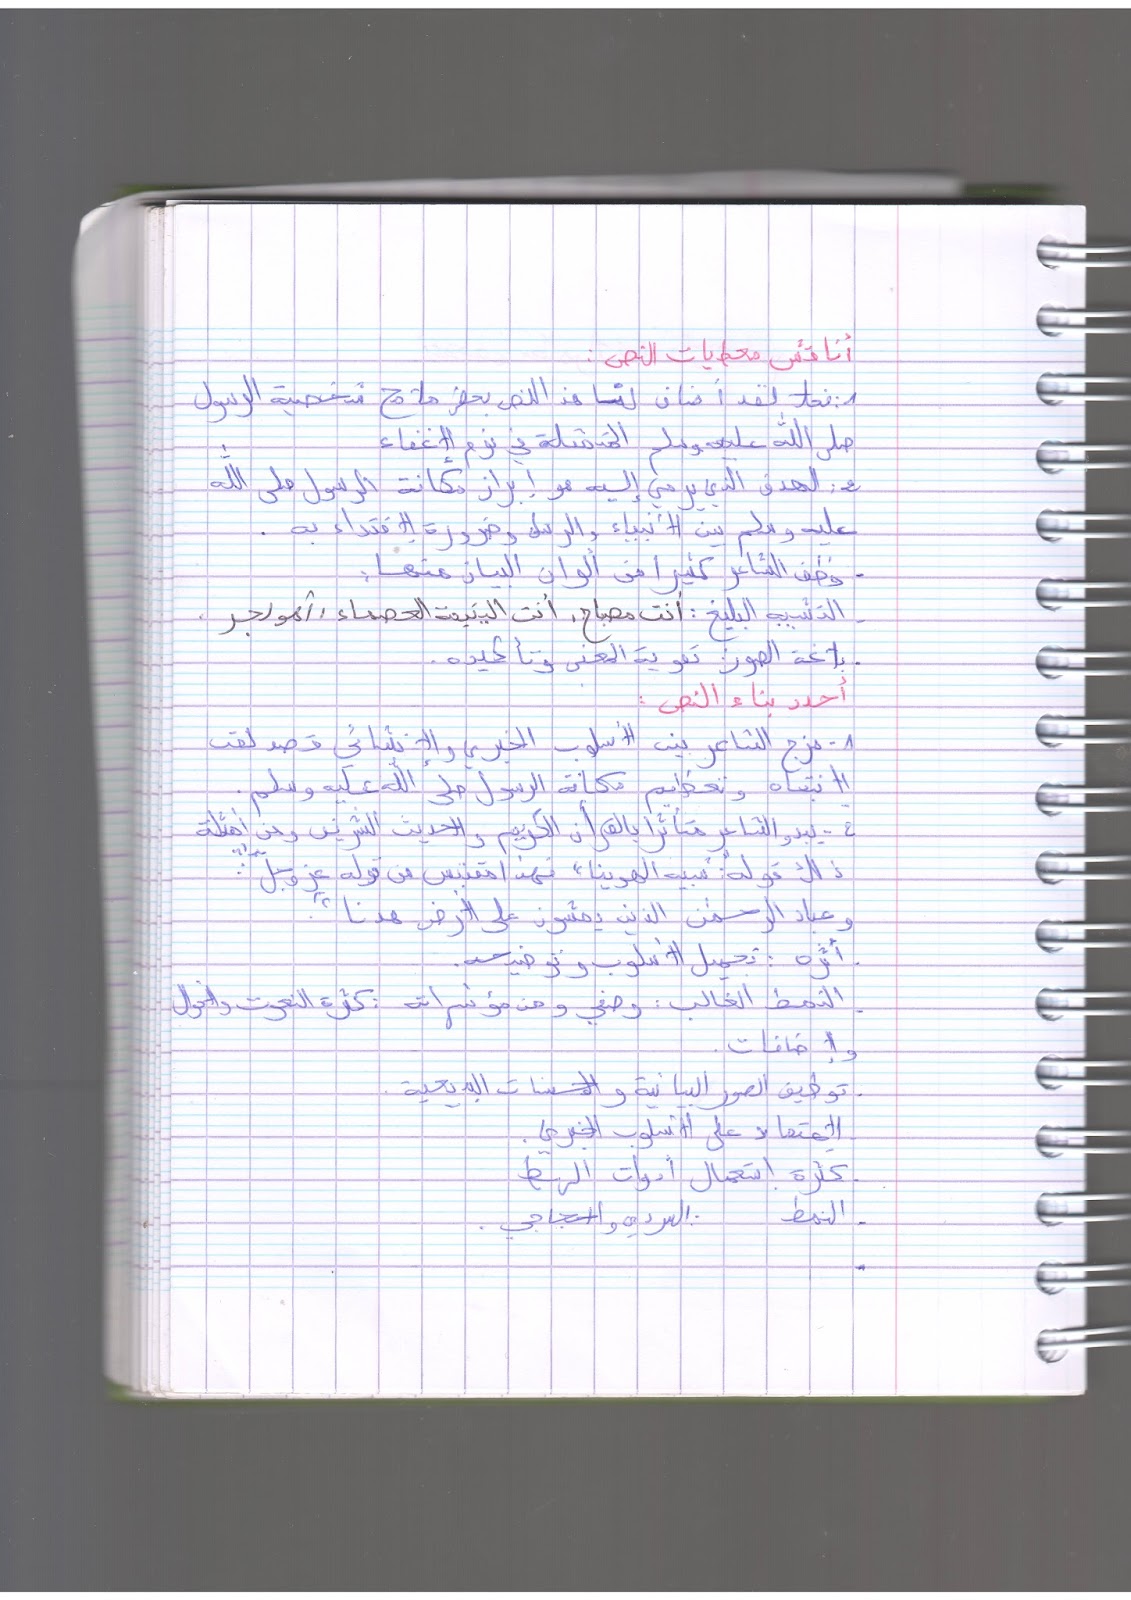 أناقش معطيات النص :
1: نعم لقد أضاف لنا هذا النص بعض ملامح شخصية الرسول
صلى الله عليه وسلم المتمثلة في نوم الإغفاء
2: الهدف الذي يرمي إليه هو إبراز مكانة الرسول صلى الله
عليه وسلم بين الأنبياء والرسل وضرورة الاقتداء به .
- وظف الشاعر كثيرا من ألوان البيان منها :
- التشبيه البليغ : أنت مصباح , أنت اليتيمة العصماء ,
- بلاغة الصور : تقوية المعنى وتأكيده .
أحدد بناء النص :
1- مزج الشاعر بين الأسلوب الخبري والإنشائي قصد لفت
الانتباه وتعظيم مكانة الرسول صلى الله عليه وسلم .
2- يبدو الشاعر متأثرا بالقرآن الكريم والحديث الشريف ومن أمثلة
ذلك قوله : " الهوينا " فهذا مقتبس من قوله عز وجل : "
وعباد الرحمن الذين يمشون على الأرض هونا " .
- أثره : تجميل الأسلوب وتوضيحه .
- النمط الغالب : وصفي ومن مؤشراته : كثرة النعوت والأحوال
والإضافات .
- توظيف الصور البيانية والمحسنات البديعية .
- الاعتماد على الأسلوب الخبري .
- كثرة استعمال أدوات الربط
- النمط : السردي والحجاجي .